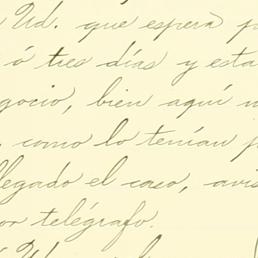 Ud. que espera
ó tres días y esta
egocio, bien aquí
como lo tenían
llegado el caso, avis
or telégrafo.